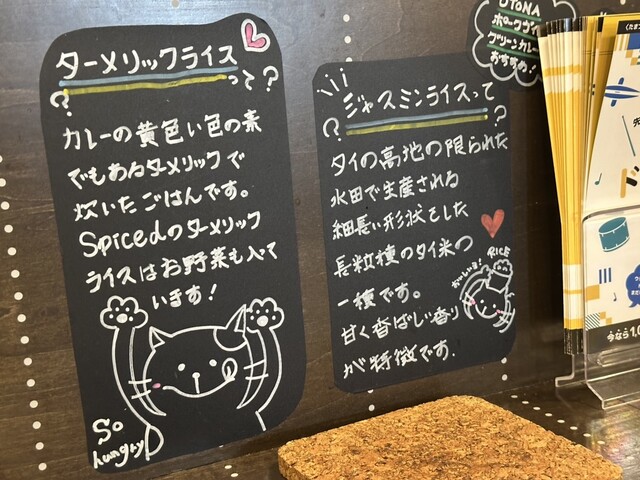 ターメリックライス
って?
?
カレーの黄色い色の素
でもあるターメリックで
炊いたごはんです。
Spicedのターメリック
ライスはお野菜も入って
います!
So
hungry
ジャスミンライスって
?
?
タイの高地の限られた
水田で生産される
細長い形状をした
長粒種のタイ米の
一種です。
甘く香ばしい香り
が特徴です.
おいしいよ!
RICE
OTONA
グリーンカレー
おすすめ!
今なら1,0